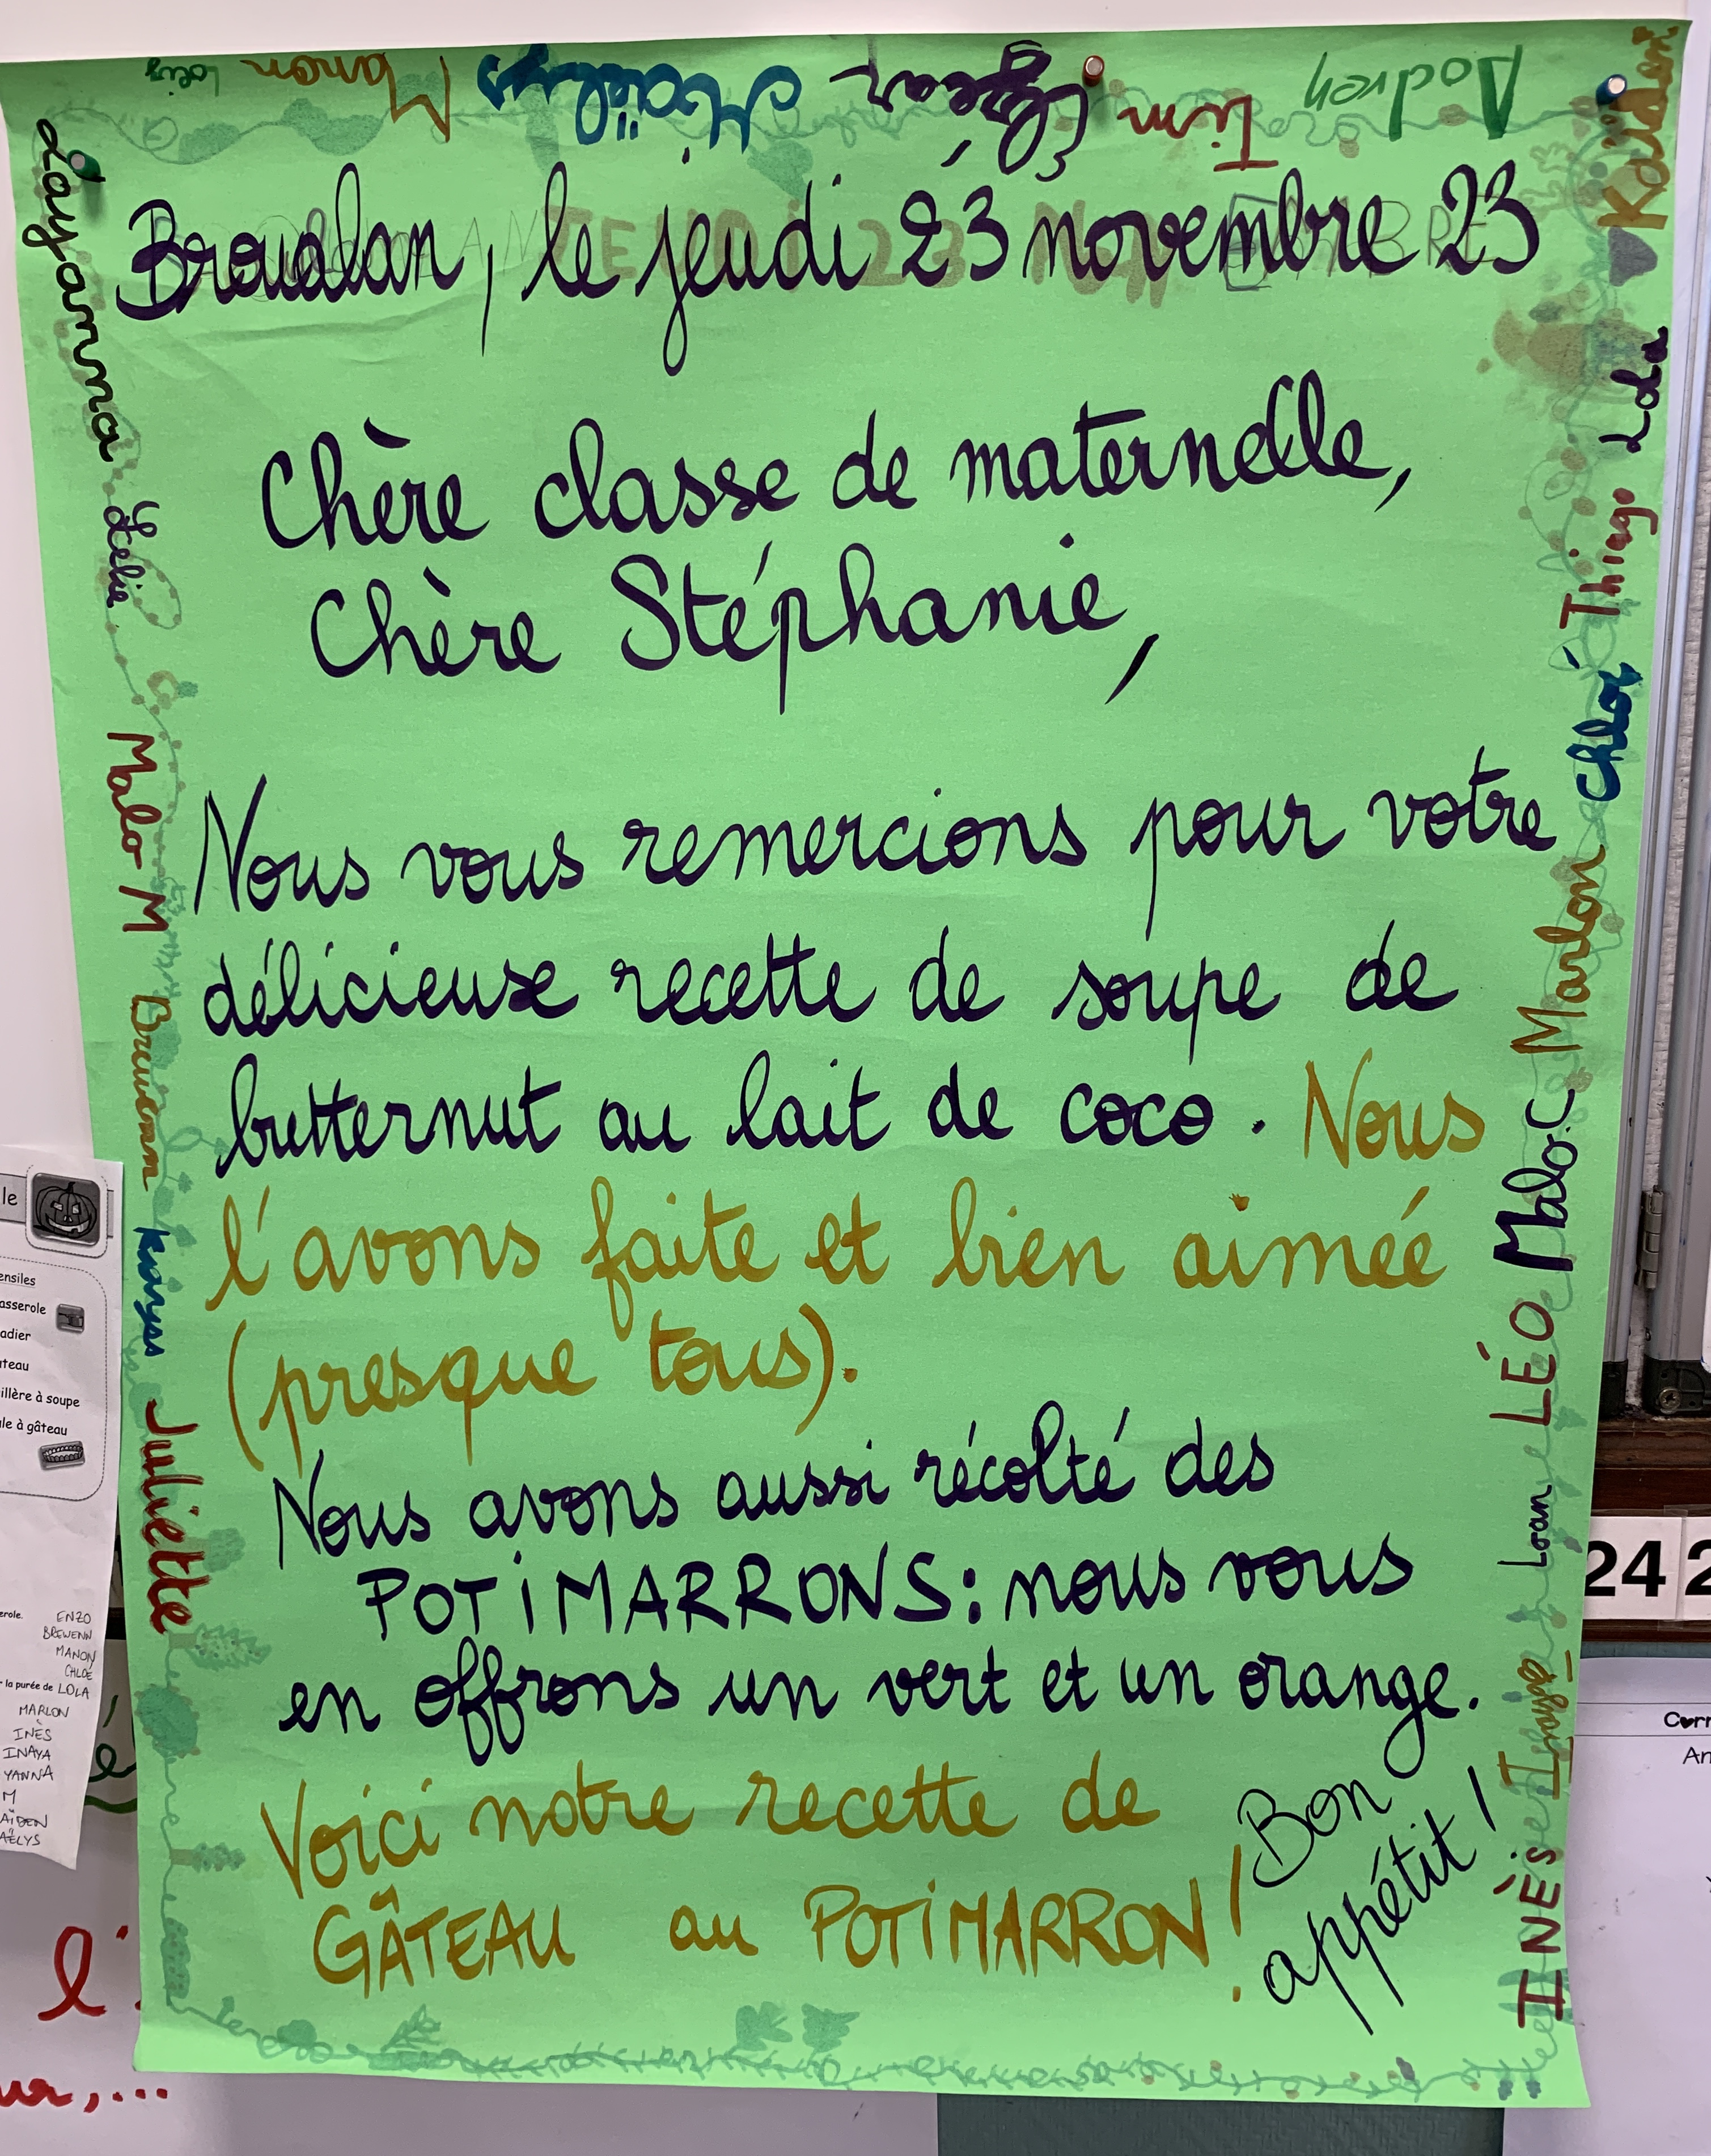 Loeiz Manon Maëlys Elzéar Tim Aodren
Kaïden
Broualan, le jeudi 23 novembre 23
Chère classe de maternelle,
Chère Stéphanie,
Nous vous remercions pour votre
délicieuse recette de soupe de
butternut au lait de coco. Nous
l'avons faite et bien aimée
(presque tous).
Nous avons aussi récolté des
POTIMARRONS : nous vous
en offrons un vert et un orange.
Voici notre recette de
GÂTEAU au POTIMARRON !
Bon
appétit !
Layanna
Lélia
Malo M
Brewenn
Juliette
Lola
Thiago
Chloé
Marlon
Malo.C
LÉO
Loan
Inaya
INÈS
le
ensiles
asserole
adier
ateau
illère à soupe
ule à gâteau
erole.
ENZO
BREWENN
MANON
CHLOÉ
la purée de LOLA
MARLON
INÈS
INAYA
YANNA
M
AÏDEN
AËLYS
l'
ur,...
24 2
Corr
An